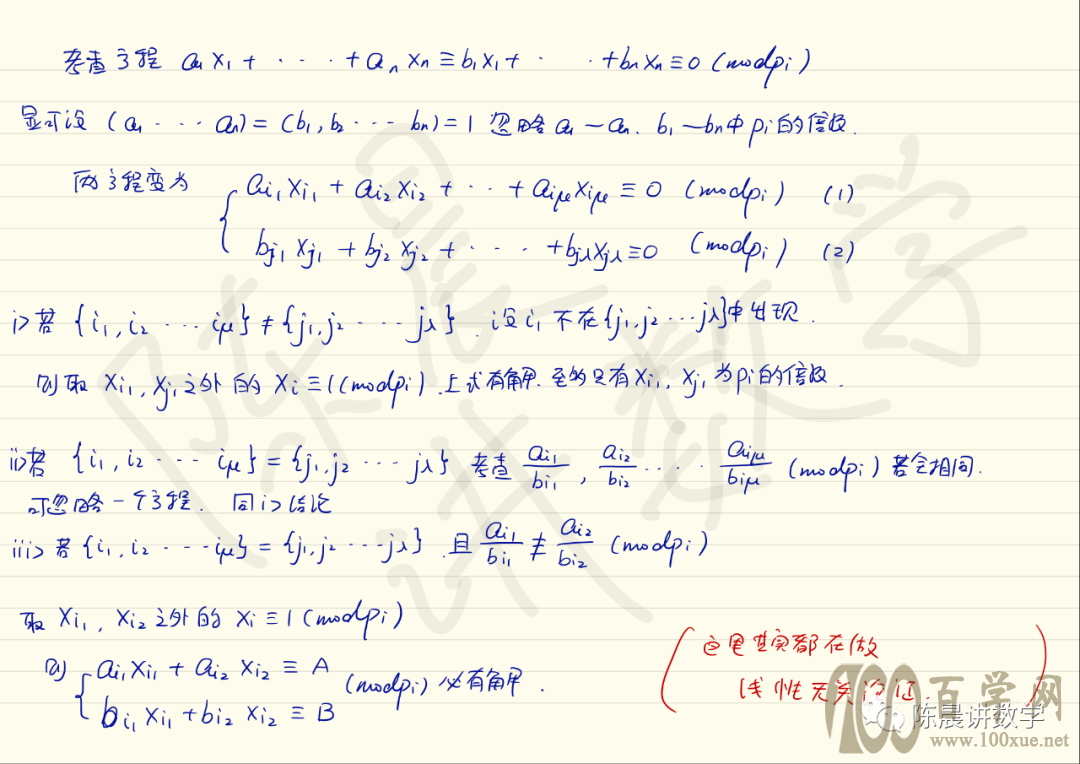 考查方程 a₁x₁+ ····· +aₙxₙ≡b₁x₁+ · · +bₙxₙ≡0 (modpᵢ)
显可设 (a₁ ···· aₙ)=(b₁,b₂ ··· bₙ)=1 忽略 a₁—aₙ、b₁—bₙ中pᵢ的倍数.
两方程变为 { aᵢ₁xᵢ₁ + aᵢ₂xᵢ₂ + ··· + aᵢμxᵢμ ≡ 0 (modpᵢ) (1)
bⱼ₁xⱼ₁ + bⱼ₂xⱼ₂ + ···· +bⱼλxⱼλ≡0 (modpᵢ) (2)
i>若 {i₁,i₂ ··· iμ} ≠ {j₁,j₂ ··· jλ} . 设i₁不在{j₁,j₂···jλ}中出现.
则取 xᵢ₁,xⱼ₁之外的 xᵢ≡1(modpᵢ) .上式有解.至多只有xᵢ₁,xⱼ₁为pᵢ的倍数.
ii>若 {i₁,i₂ ··· iμ}={j₁,j₂ ··· jλ} 考查 aᵢ₁/bᵢ₁ , aᵢ₂/bᵢ₂ ···· aᵢμ/bᵢμ (modpᵢ) 若全相同.
可忽略一个方程. 同i>结论
iii>若 {i₁,i₂ ···iμ}={j₁,j₂ ···jλ} .且 aᵢ₁/bᵢ₁ ≢ aᵢ₂/bᵢ₂ (modpᵢ)
取 xᵢ₁,xᵢ₂之外的 xᵢ≡1(modpᵢ)
则 { aᵢ₁xᵢ₁ + aᵢ₂xᵢ₂ ≡ A
bᵢ₁xᵢ₁+bᵢ₂xᵢ₂ ≡ B (modpᵢ) 必有解.
(这里其实都在做
线性无关验证.)
陈晨讲数学
陈晨讲数学
100百学网
www.100xue.net